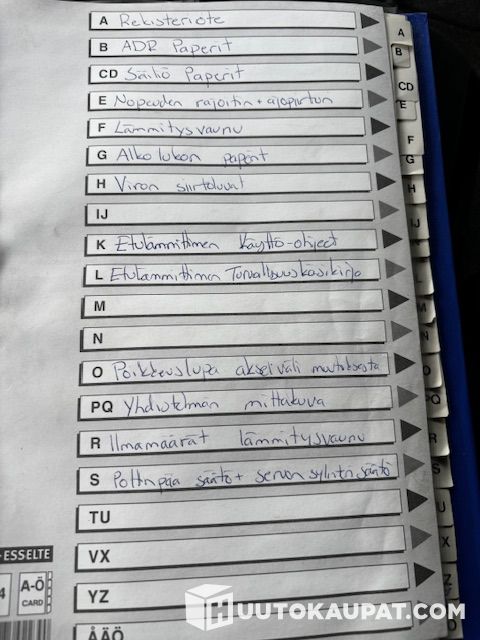 A Rekisteriote
A
B ADR Paperit
B
CD Säiliö Paperit
CD
E Nopeuden rajoitin + ajopiirturi
E
F Lämmitysvaunu
F
G Alkolukon paperit
G
H Viron siirtoluvat
H
IJ
IJ
K Etulämmittimen Käyttö-ohjeet
K
L Etulämmittimen Turvallisuuskäsikirja
L
M
M
N
N
O Poikkeuslupa akseliväli muutoksesta
O
PQ Yhdistelmän mittakuva
PQ
R Ilmamäärät lämmitysvaunu
R
S Polttinpää säätö + servon sylinterin säätö
S
TU
U
VX
X
YZ
Z
ÅÄÖ
ESSELTE
4
A-Ö
CARD
HUUTOKAUPAT.COM